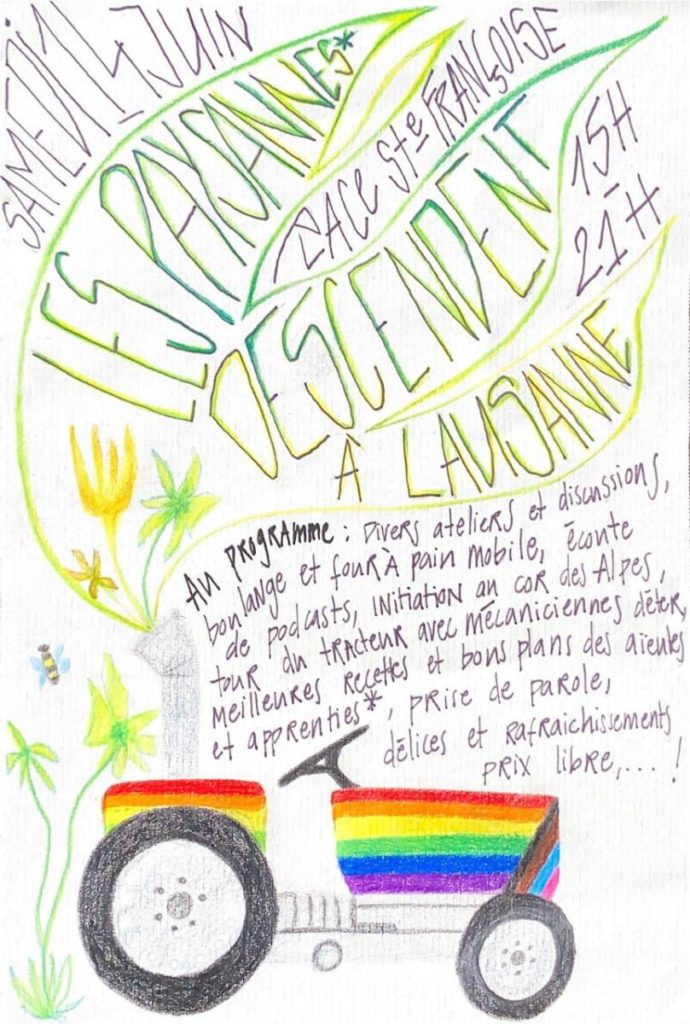 SAMEDI 14 JUIN
LES PAYSANNES*
PLACE Ste FRANÇOISE
DESCENDENT
15H
-
21H
À LAUSANNE
AU PROGRAMME : Divers ateliers et discussions,
boulange et four à pain mobile, écoute
de podcasts, initiation au cor des Alpes,
tour du tracteur avec mécaniciennes déter,
Meilleures Recettes et bons plans des aïeules
et apprenties*, prise de parole,
délices et Rafraichissements
prix libre,... !